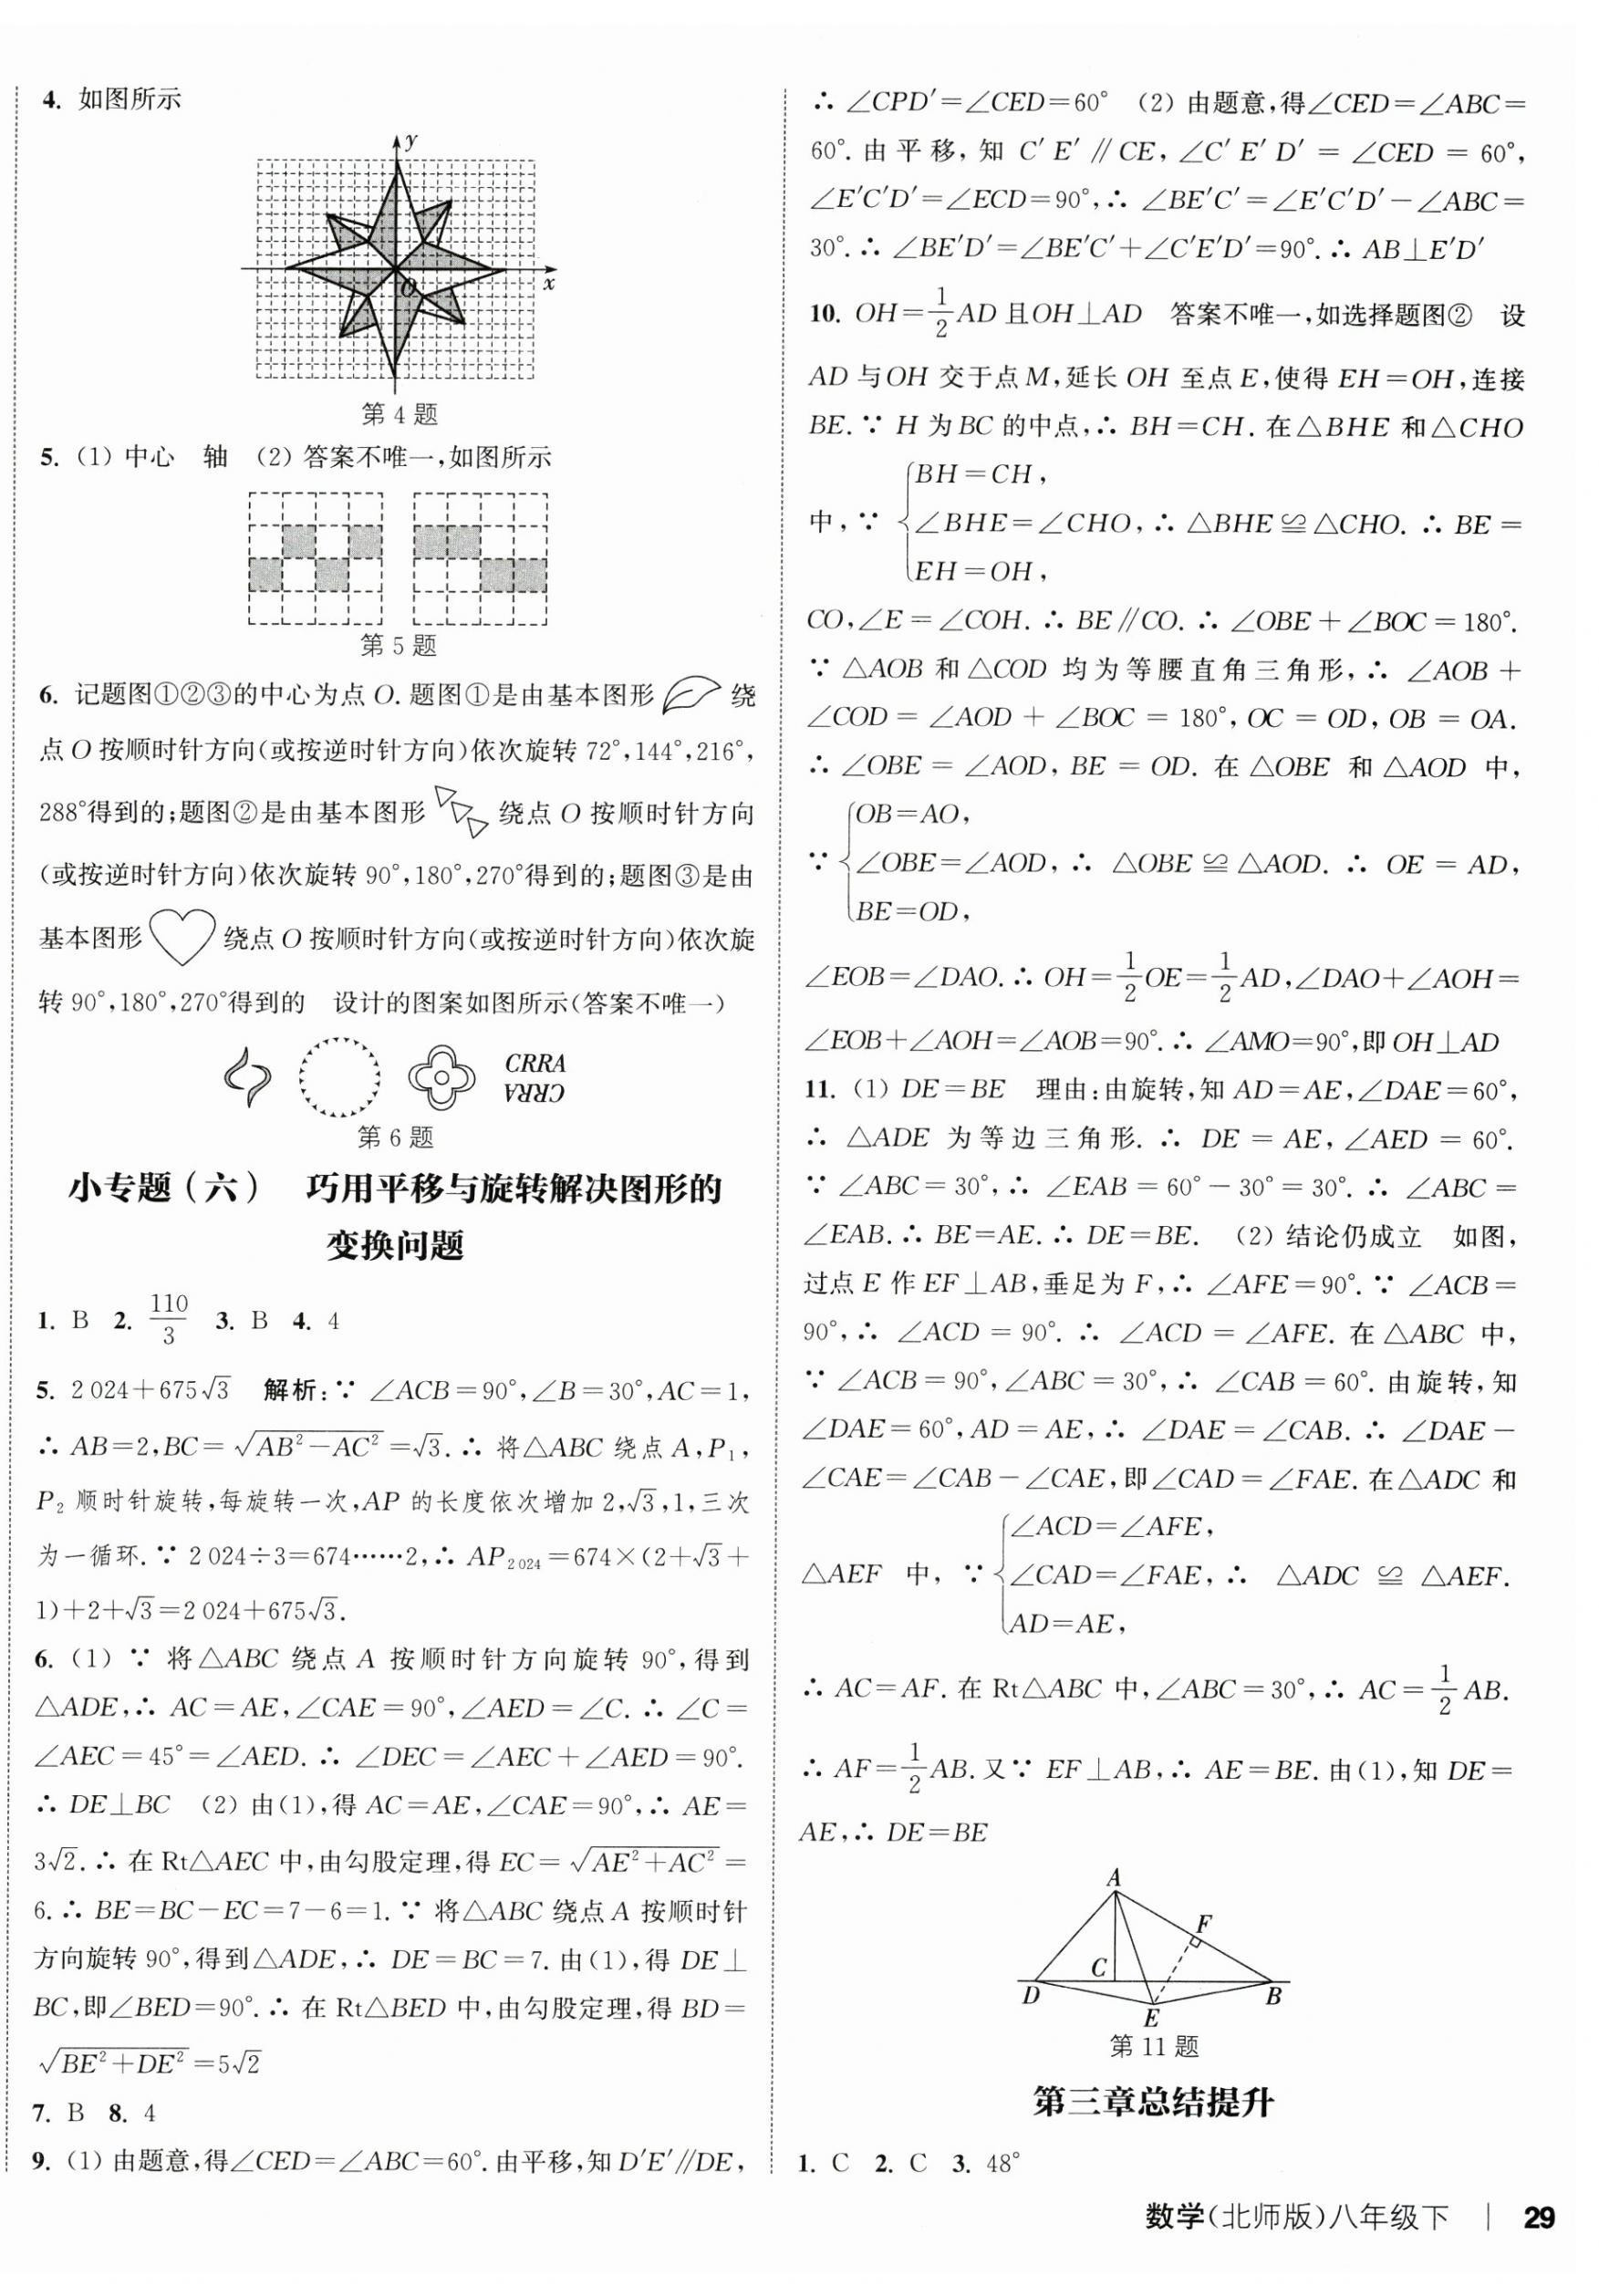 4. 如图所示
y
O
x
第 4 题
5. (1) 中心　轴　(2) 答案不唯一,如图所示
第 5 题
6. 记题图①②③的中心为点 O. 题图①是由基本图形 绕
点 O 按顺时针方向(或按逆时针方向)依次旋转 72°,144°,216°,
288°得到的;题图②是由基本图形 绕点 O 按顺时针方向
(或按逆时针方向)依次旋转 90°,180°,270°得到的;题图③是由
基本图形 绕点 O 按顺时针方向(或按逆时针方向)依次旋
转 90°,180°,270°得到的　设计的图案如图所示(答案不唯一)
CRRA
CRRA
第 6 题
小专题(六)　巧用平移与旋转解决图形的
变换问题
1. B 2. 110/3 3. B 4. 4
5. 2 024+675√3　解析:∵ ∠ACB=90°,∠B=30°,AC=1,
∴ AB=2,BC=√(AB²-AC²)=√3. ∴ 将△ABC 绕点 A,P₁,
P₂ 顺时针旋转,每旋转一次,AP 的长度依次增加 2,√3,1,三次
为一循环. ∵ 2 024÷3=674……2,∴ AP₂₀₂₄=674×(2+√3+
1)+2+√3=2 024+675√3.
6. (1) ∵ 将△ABC 绕点 A 按顺时针方向旋转 90°,得到
△ADE,∴ AC=AE,∠CAE=90°,∠AED=∠C. ∴ ∠C=
∠AEC=45°=∠AED. ∴ ∠DEC=∠AEC+∠AED=90°.
∴ DE⊥BC　(2) 由(1),得 AC=AE,∠CAE=90°,∴ AE=
3√2. ∴ 在 Rt△AEC 中,由勾股定理,得 EC=√(AE²+AC²)=
6. ∴ BE=BC-EC=7-6=1. ∵ 将△ABC 绕点 A 按顺时针
方向旋转 90°,得到△ADE,∴ DE=BC=7. 由(1),得 DE⊥
BC,即∠BED=90°. ∴ 在 Rt△BED 中,由勾股定理,得 BD=
√(BE²+DE²)=5√2
7. B 8. 4
9. (1) 由题意,得∠CED=∠ABC=60°. 由平移,知 D′E′∥DE,
∴ ∠CPD′=∠CED=60°　(2) 由题意,得∠CED=∠ABC=
60°. 由平移,知 C′E′∥CE,∠C′E′D′=∠CED=60°,
∠E′C′D′=∠ECD=90°,∴ ∠BE′C′=∠E′C′D′-∠ABC=
30°. ∴ ∠BE′D′=∠BE′C′+∠C′E′D′=90°. ∴ AB⊥E′D′
10. OH=1/2 AD 且OH⊥AD　答案不唯一,如选择题图②　设
AD 与OH 交于点 M,延长 OH 至点 E,使得 EH=OH,连接
BE. ∵ H 为 BC 的中点,∴ BH=CH. 在△BHE 和△CHO
BH=CH,
中,∵ ∠BHE=∠CHO,∴ △BHE≌△CHO. ∴ BE=
EH=OH,
CO,∠E=∠COH. ∴ BE∥CO. ∴ ∠OBE+∠BOC=180°.
∵ △AOB 和△COD 均为等腰直角三角形,∴ ∠AOB+
∠COD=∠AOD+∠BOC=180°,OC=OD,OB=OA.
∴ ∠OBE=∠AOD,BE=OD. 在△OBE 和△AOD 中,
OB=AO,
∵ ∠OBE=∠AOD,∴ △OBE≌△AOD. ∴ OE=AD,
BE=OD,
∠EOB=∠DAO. ∴ OH=1/2 OE=1/2 AD,∠DAO+∠AOH=
∠EOB+∠AOH=∠AOB=90°. ∴ ∠AMO=90°,即 OH⊥AD
11. (1) DE=BE　理由:由旋转,知 AD=AE,∠DAE=60°,
∴ △ADE 为等边三角形. ∴ DE=AE,∠AED=60°.
∵ ∠ABC=30°,∴ ∠EAB=60°-30°=30°. ∴ ∠ABC=
∠EAB. ∴ BE=AE. ∴ DE=BE.　(2) 结论仍成立　如图,
过点 E 作 EF⊥AB,垂足为 F,∴ ∠AFE=90°. ∵ ∠ACB=
90°,∴ ∠ACD=90°. ∴ ∠ACD=∠AFE. 在△ABC 中,
∵ ∠ACB=90°,∠ABC=30°,∴ ∠CAB=60°. 由旋转,知
∠DAE=60°,AD=AE,∴ ∠DAE=∠CAB. ∴ ∠DAE-
∠CAE=∠CAB-∠CAE,即∠CAD=∠FAE. 在△ADC 和
∠ACD=∠AFE,
△AEF 中,∵ ∠CAD=∠FAE,∴ △ADC≌△AEF.
AD=AE,
∴ AC=AF. 在 Rt△ABC 中,∠ABC=30°,∴ AC=1/2 AB.
∴ AF=1/2 AB. 又∵ EF⊥AB,∴ AE=BE. 由(1),知 DE=
AE,∴ DE=BE
A
F
C
D
B
E
第 11 题
第三章总结提升
1. C 2. C 3. 48°
数学(北师版)八年级下 | 29